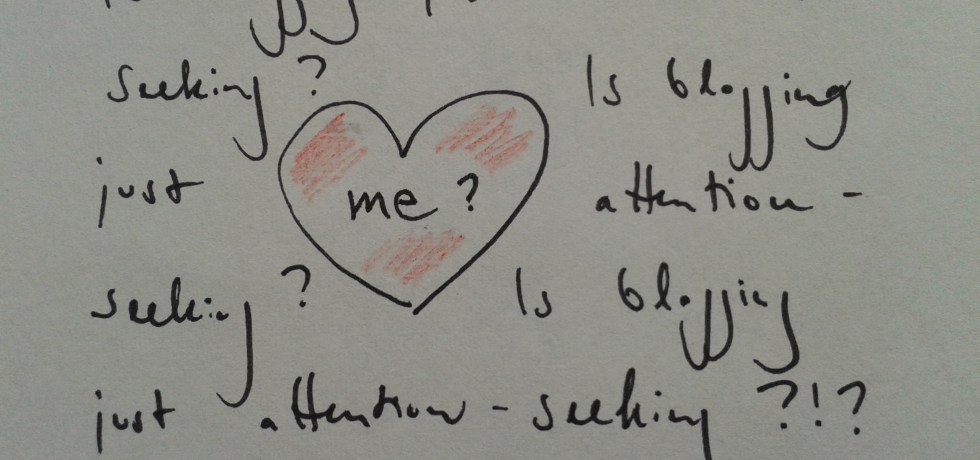 seeking? Is blogging
just me? attention-
seeking? Is blogging
just attention-seeking?!?